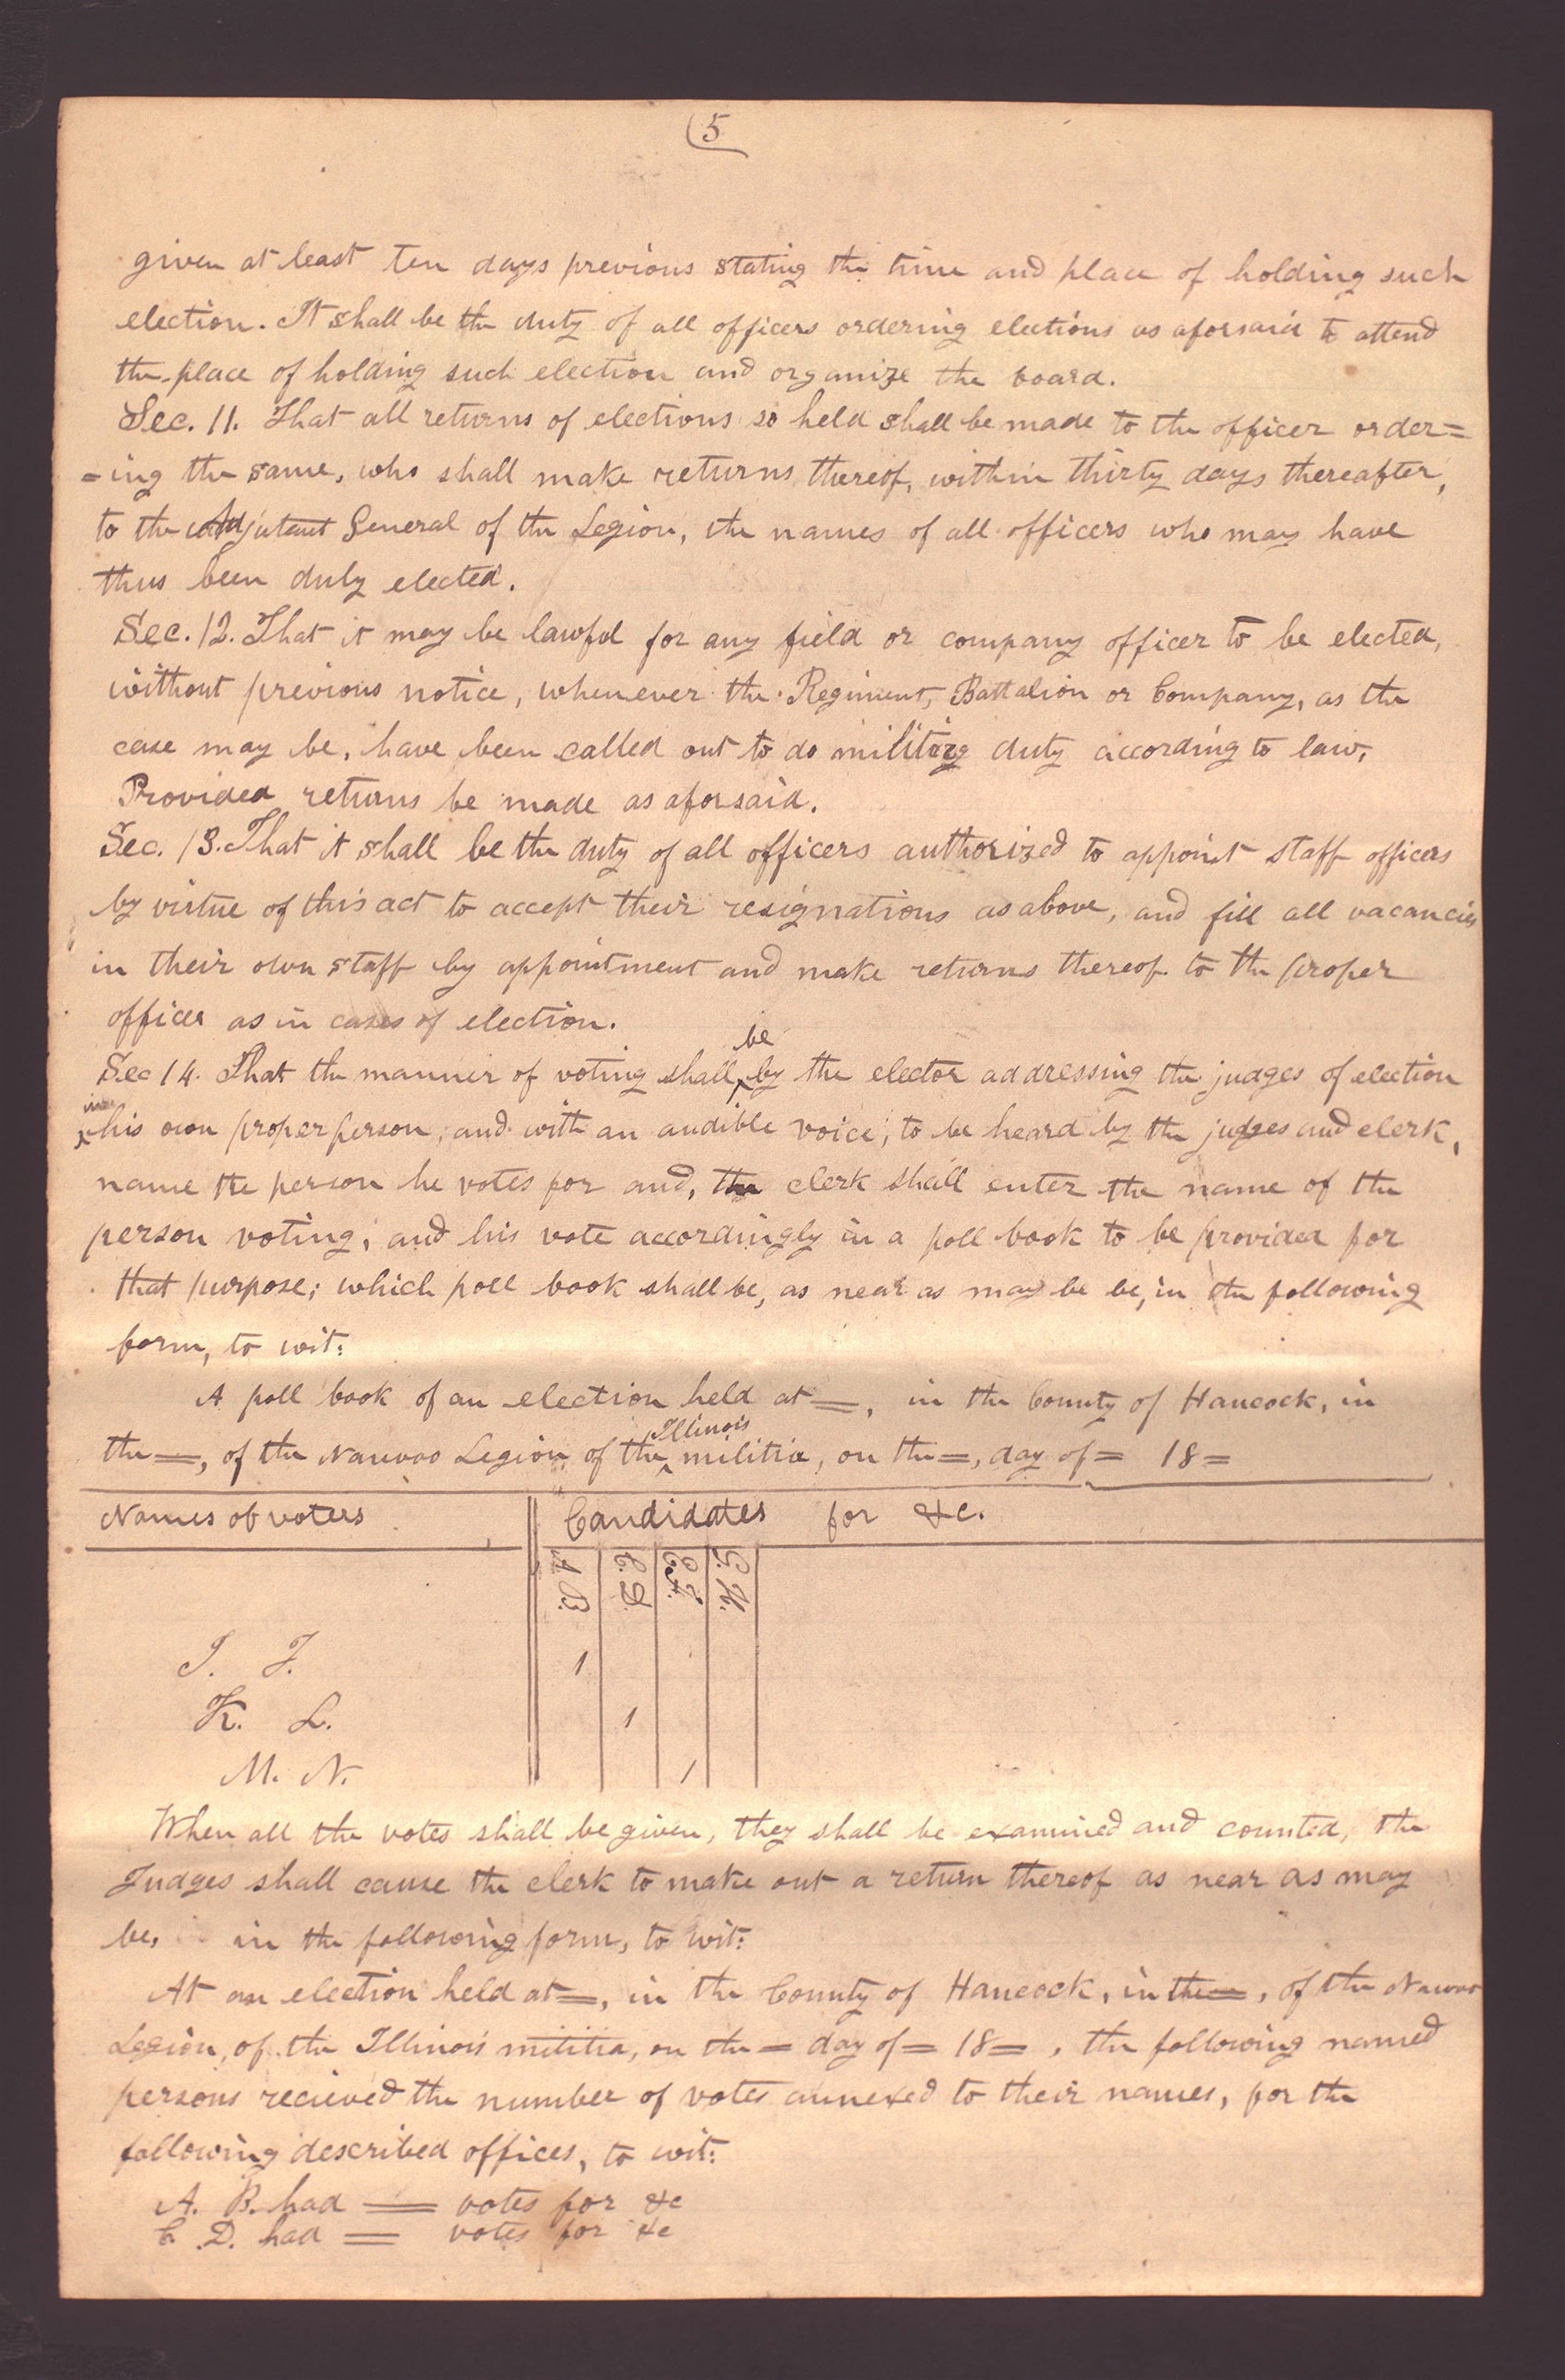 5
given at least ten days previous stating the time and place of holding such
election. It shall be the duty of all officers ordering elections as aforsaid to attend
the place of holding such election and organize the board.
Sec. 11. That all returns of elections so held shall be made to the officer order=
=ing the same, who shall make returns thereof, within thirty days thereafter,
to the Adjutant General of the Legion, the names of all officers who may have
thus been duly elected.
Sec. 12. That it may be lawful for any field or company officer to be elected,
without previous notice, whenever the Regiment, Battalion or Company, as the
case may be, have been called out to do military duty according to law,
Provided returns be made as aforsaid.
Sec. 13. That it shall be the duty of all officers authorized to appoint staff officers
by virtue of this act to accept their resignations as above, and fill all vacancies
in their own staff by appointment and make returns thereof to the proper
officer as in cases of election.
be
Sec 14. That the manner of voting shall ‸ by the elector addressing the judges of election
in
‸ his own proper person; and with an audible voice, to be heard by the judges and clerk,
name the person he votes for and, the clerk shall enter the name of the
person voting; and his vote accordingly in a poll book to be provided for
that purpose; which poll book shall be, as near as may be be, in the following
form, to wit:
A poll book of an election held at =, in the County of Hancock, in
Illinois
the =, of the Nauvoo Legion of the ‸ militia, on the =, day of = 18 =
Names of voters Candidates for &c.
A B. C. D. E. F. G. H.
I. J. 1
K. L. 1
M. N. 1
When all the votes shall be given, they shall be examined and counted, the
Judges shall cause the clerk to make out a return thereof as near as may
be, in the following form, to wit:
At an election held at =, in the County of Hancock, in the =, of the Nauvoo
Legion, of the Illinois militia, on the = day of = 18 =, the following named
persons recieved the number of votes annexed to their names, for the
following described offices, to wit:
A. B. had = votes for &c
C. D. had = votes for &c